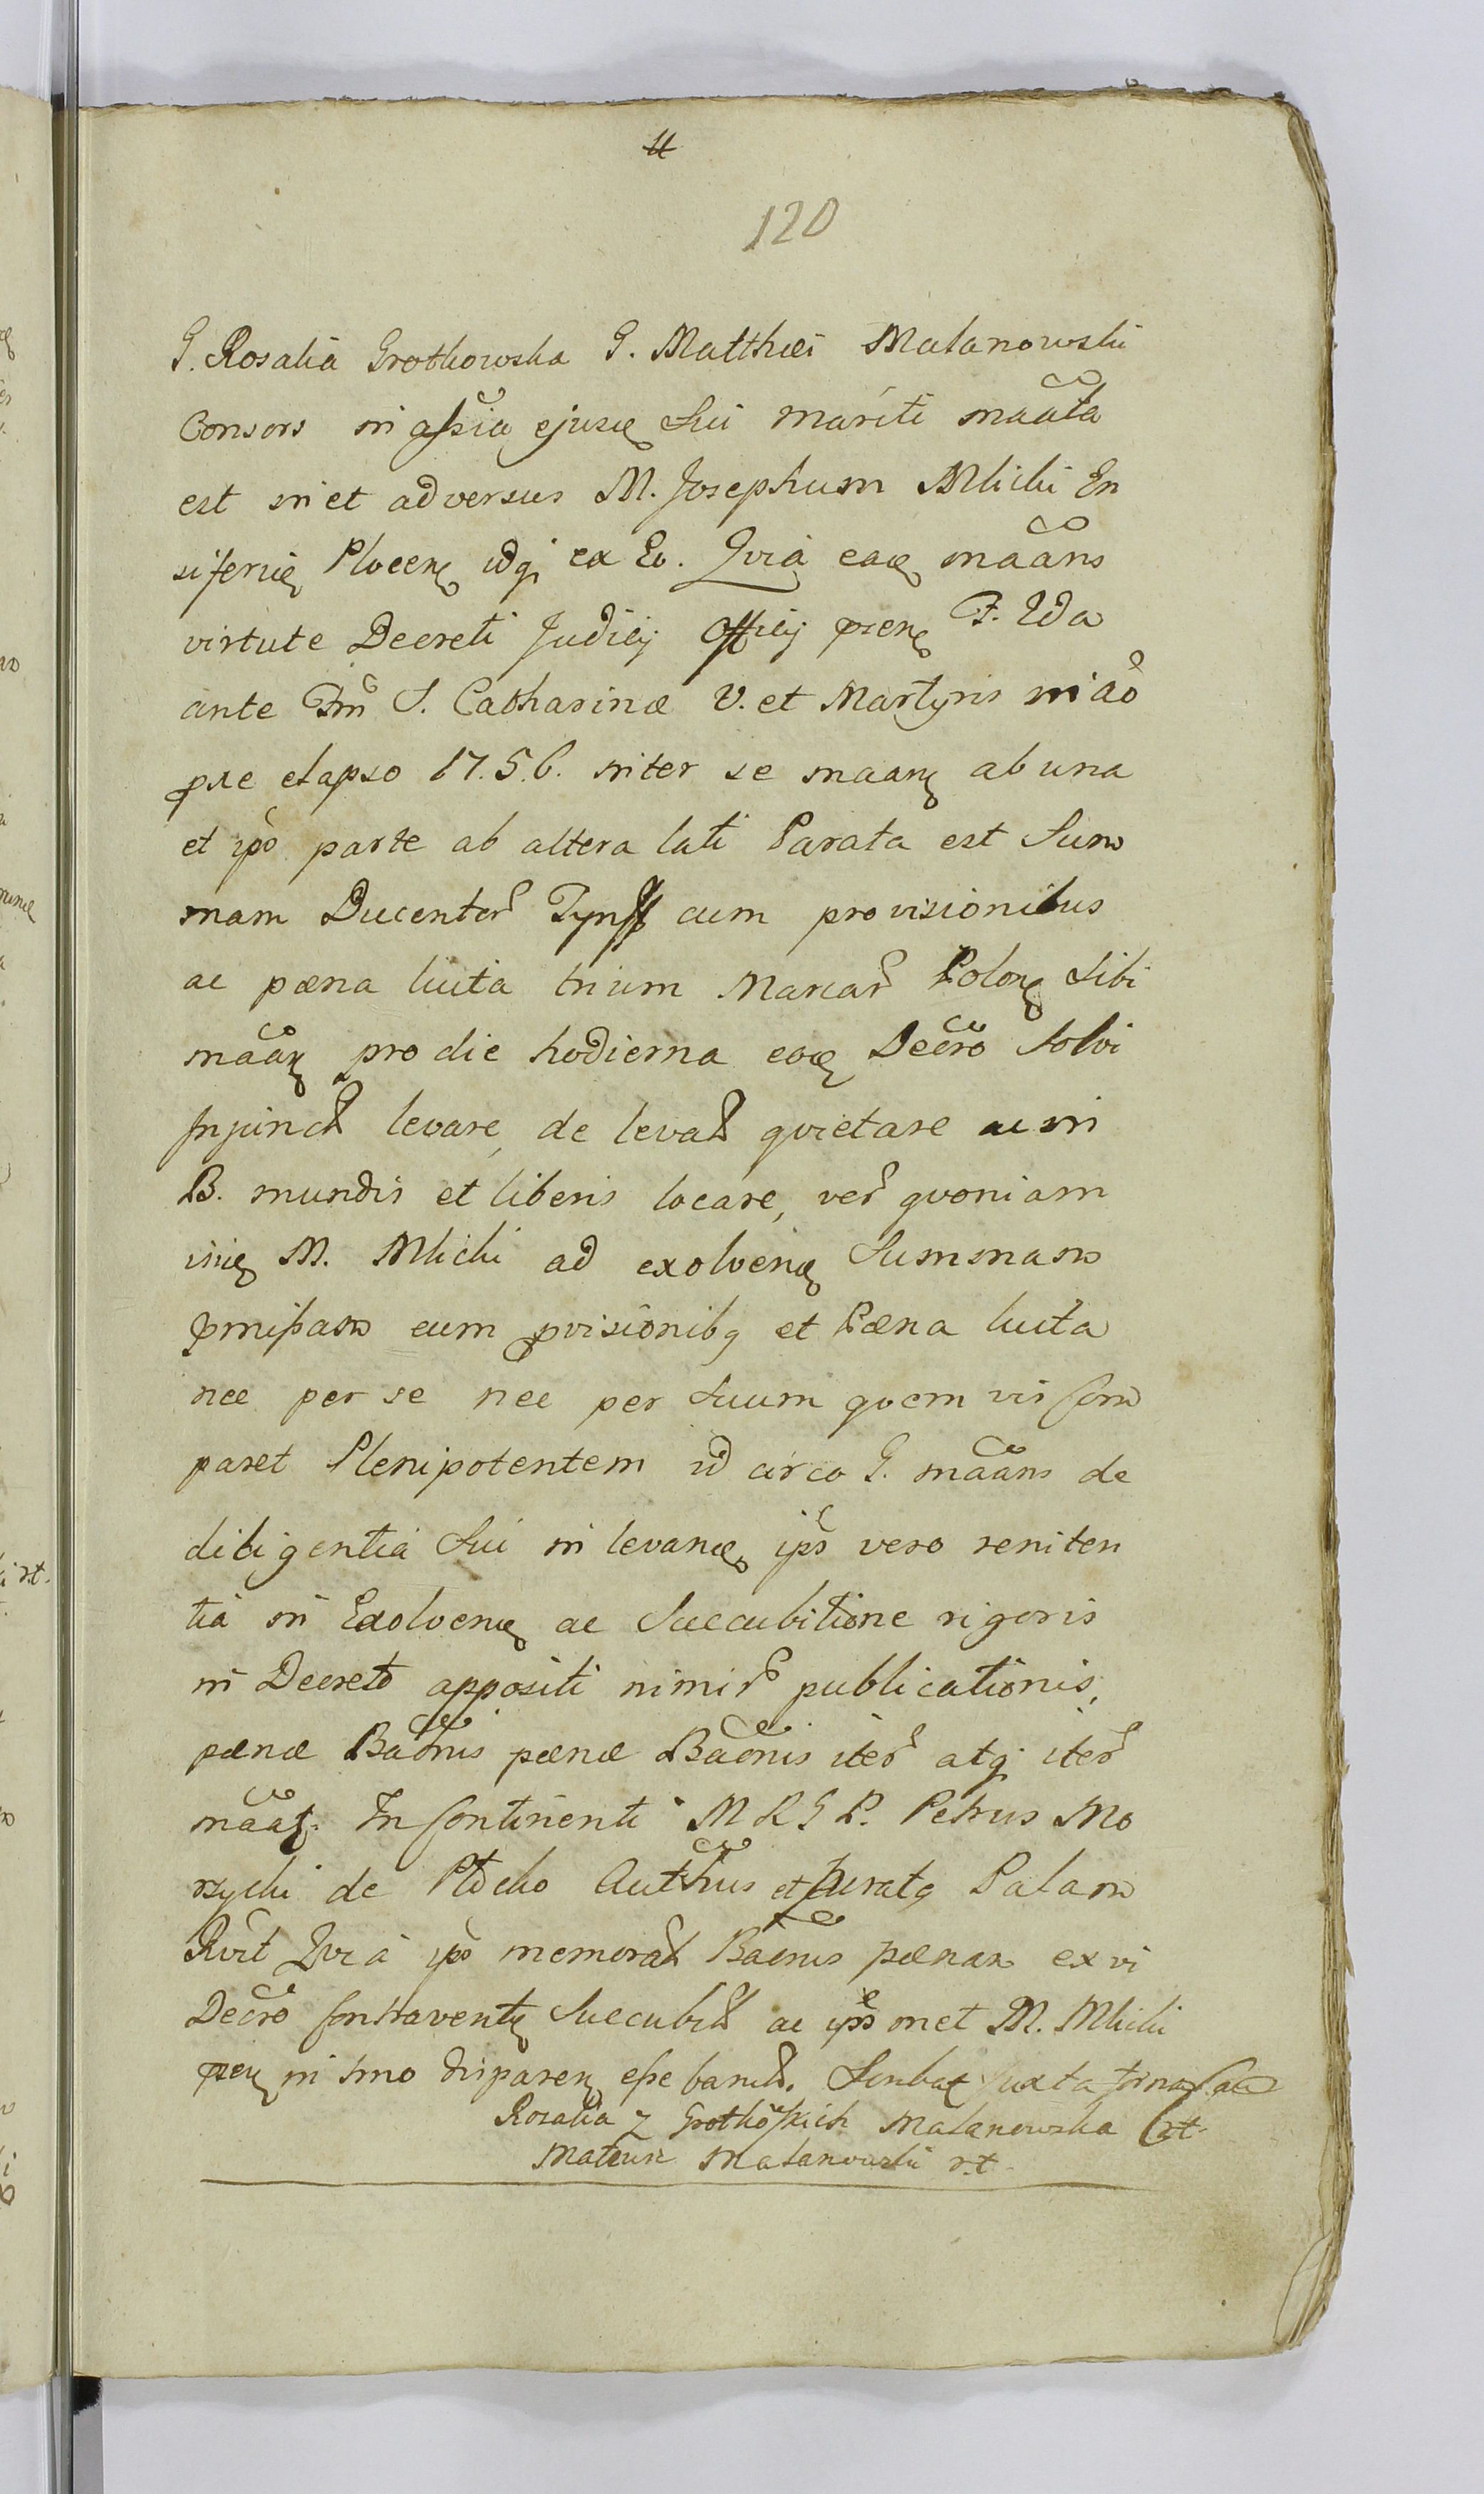 120
G. Rosalia Grothowska G. Matthæi Malanowski
Consors in assia ejusd Sui mariti maata
est in et adversus M. Josephum Mlicki En
siferū Plocen idq ex Eo. Qvia ead maans
virtute Decreti Judicij Officij præn F. 2da
ante Fm S. Catharinæ V. et Martyris in ao
præ elapso 17.5.6. inter se maan ab una
et ipo parte ab altera lati Parata est Sum
mam Ducentor Tynff cum provisionibus
ac pæna luita trium Marcar Polon Sibi
maan pro die hodierna eod Decro Solvi
Injunct levare, de levat qvietare ac in
B. mundis et liberis locare, ver qvoniam
M. Mlicki ad exolvend Summam
pmissam cum pvisionibq et Pæna luita
nec per se nec per Suum qvem vis Com
paret Plenipotentem id circo G. maans de
diligentia Sui in levand ips vero reniten
tia in Exolvend ac Succubitione rigoris
in Decreto appositi nimir publicationis,
pænæ Baonis pænæ Baonis iter atq iter
maat. In Continenti M R G P. Petrus Mo
rzycki de Plocko Authus et Juratq Palam
Rvit Qvia ipo memorat Baonis pænam ex vi
Decro Contraventę Succubit ac ips met M. Mlicki
præn in tmo disparen esse banit. Scribat juxta
Rosalia z Grothoskich Malanowska rt.
Mateusz Malanowski rt.